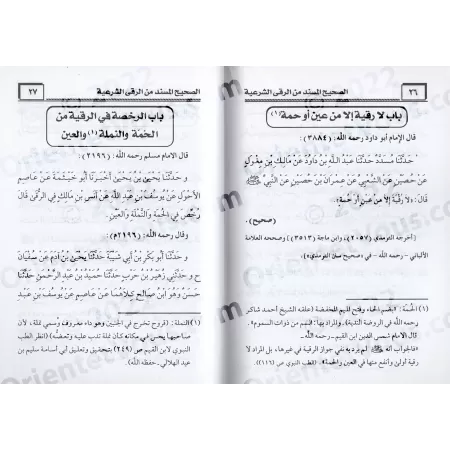 ٢٦ الصحيح المسند من الرقى الشرعية
باب لا رقية إلا من عين أو حمة (١)
قال الإمام أبو داود رحمه الله: (٣٨٨٤)
حَدَّثَنَا مُسَدَّدٌ حَدَّثَنَا عَبْدُ اللَّهِ بْنُ دَاوُدَ عَنْ مَالِكِ بْنِ مِغْوَلٍ
عَنْ حُصَيْنٍ عَنِ الشَّعْبِيِّ عَنْ عِمْرَانَ بْنِ حُصَيْنٍ عَنِ النَّبِيِّ ﷺ
قَالَ: «لَا رُقْيَةَ إِلَّا مِنْ عَيْنٍ أَوْ حُمَةٍ»
(صحيح).
أخرجه الترمذي (٢٠٥٧)، وابن ماجة (٣٥١٣) وصححه العلامة
الألباني - رحمه الله - في «صحيح سنن الترمذي»
(١) الحمة: «بضم الحاء، وفتح الميم المخففة (علقه الشيخ أحمد شاكر
رحمه الله في الروضة الندية). والمراد بها: السم من ذوات السموم».
قال الإمام شمس الدين ابن القيم - رحمه الله -
«فالجواب أنه ﷺ لم يرد به نفي جواز الرقية في غيرها، بل المراد لا
رقية أولى وأنفع منها في العين والحمة» (زاد الطب النبوي ص (١١٦)).
٢٧ الصحيح المسند من الرقى الشرعية
باب الرخصة في الرقية من
الحمة والنملة (١) والعين
قال الإمام مسلم رحمه الله: (٢١٩٦)
و حَدَّثَنَا يَحْيَى بْنُ يَحْيَى أَخْبَرَنَا أَبُو خَيْثَمَةَ عَنْ عَاصِمٍ
الْأَحْوَلِ عَنْ يُوسُفَ بْنِ عَبْدِ اللَّهِ عَنْ أَنَسِ بْنِ مَالِكٍ فِي الرُّقَى قَالَ
رُخِّصَ فِي الْحُمَةِ وَالنَّمْلَةِ وَالْعَيْنِ.
وقال رحمه الله: (٢١٩٦م)
و حَدَّثَنَا أَبُو بَكْرِ بْنُ أَبِي شَيْبَةَ حَدَّثَنَا يَحْيَى بْنُ آدَمَ عَنْ سُفْيَانَ
ح و حَدَّثَنِي زُهَيْرُ بْنُ حَرْبٍ حَدَّثَنَا حُمَيْدُ بْنُ عَبْدِ الرَّحْمَنِ حَدَّثَنَا
حَسَنٌ وَهُوَ ابْنُ صَالِحٍ كِلَاهُمَا عَنْ عَاصِمٍ عَنْ يُوسُفَ بْنِ عَبْدِ
(١) النملة: (قروح تخرج في الجنبين وهو داء معروف وسمي نملة، لأن
صاحبها يحس في مكانه كأن نملة تدب عليه وتعضه) (انظر الطب
النبوي لابن القيم ص (٢٤٩) بتحقيق وتعليق أبي أسامة سليم بن
عيد الهلالي. حفظه الله).